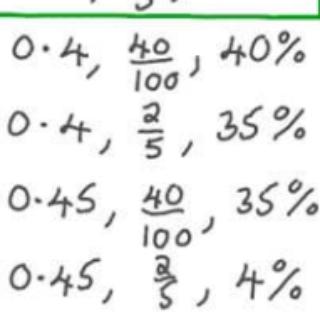 0.4, 40/100, 40%
0.4, 2/5, 35%
0.45, 40/100, 35%
0.45, 2/5, 4%